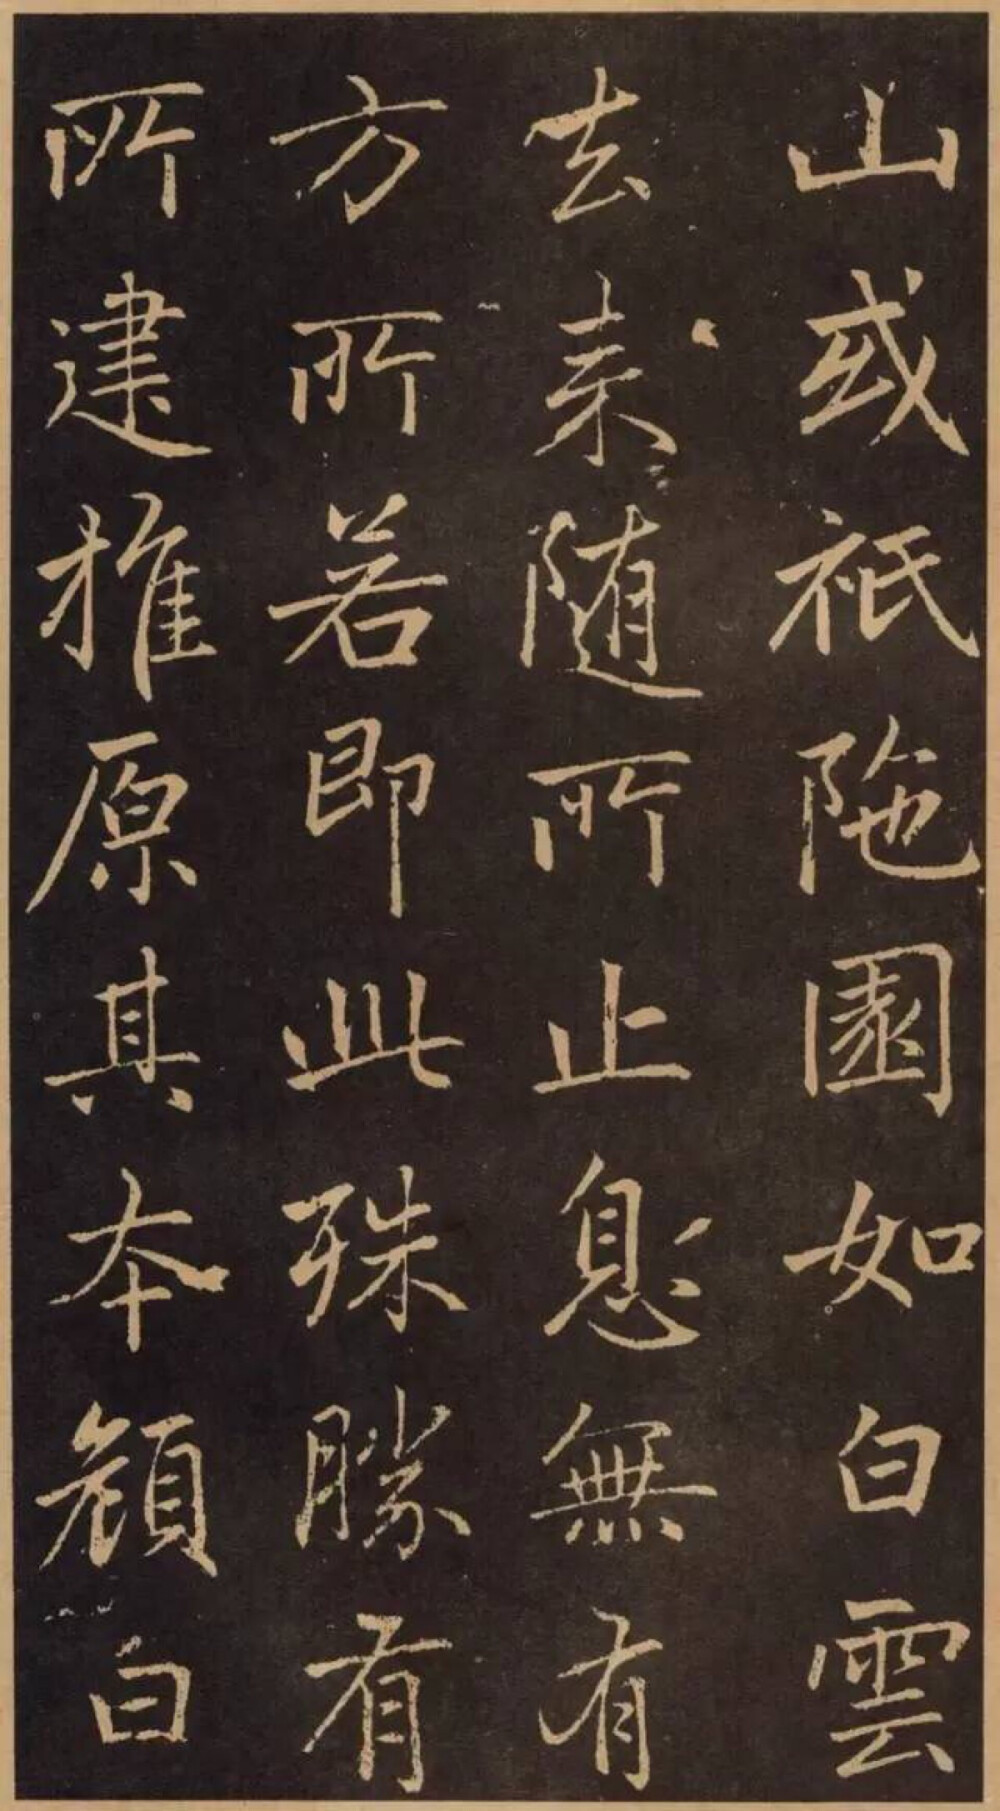 山或祇陁園如白雲
去来随所止息無有
方所若即此殊勝有
所建推原其本顔白